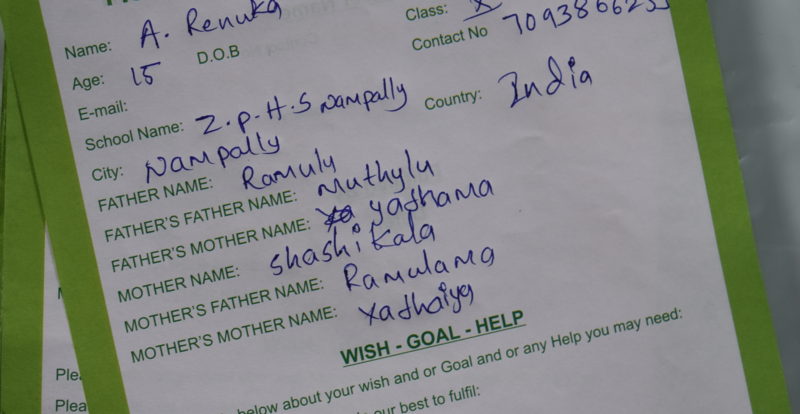 Name: A. Renuka Class: X
Age: 15 D.O.B Contact No
E-mail:
School Name: Z.P.H.S Nampally Country: India
City: Nampally
FATHER NAME: Ramulu
FATHER'S FATHER NAME: Muthylu
FATHER'S MOTHER NAME: yathama
MOTHER NAME: Shashi kala
MOTHER'S FATHER NAME: Ramulama
MOTHER'S MOTHER NAME: Yathaiya
WISH - GOAL - HELP
below about your wish and or Goal and or any Help you may need:
our best to fulfil:
Plea